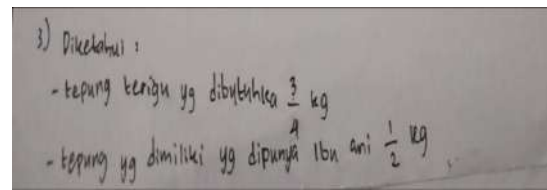 3) Diketahui :
- tepung terigu yg dibutuhka 3/4 kg
- tepung yg dimiliki yg dipunya Ibu ani 1/2 kg